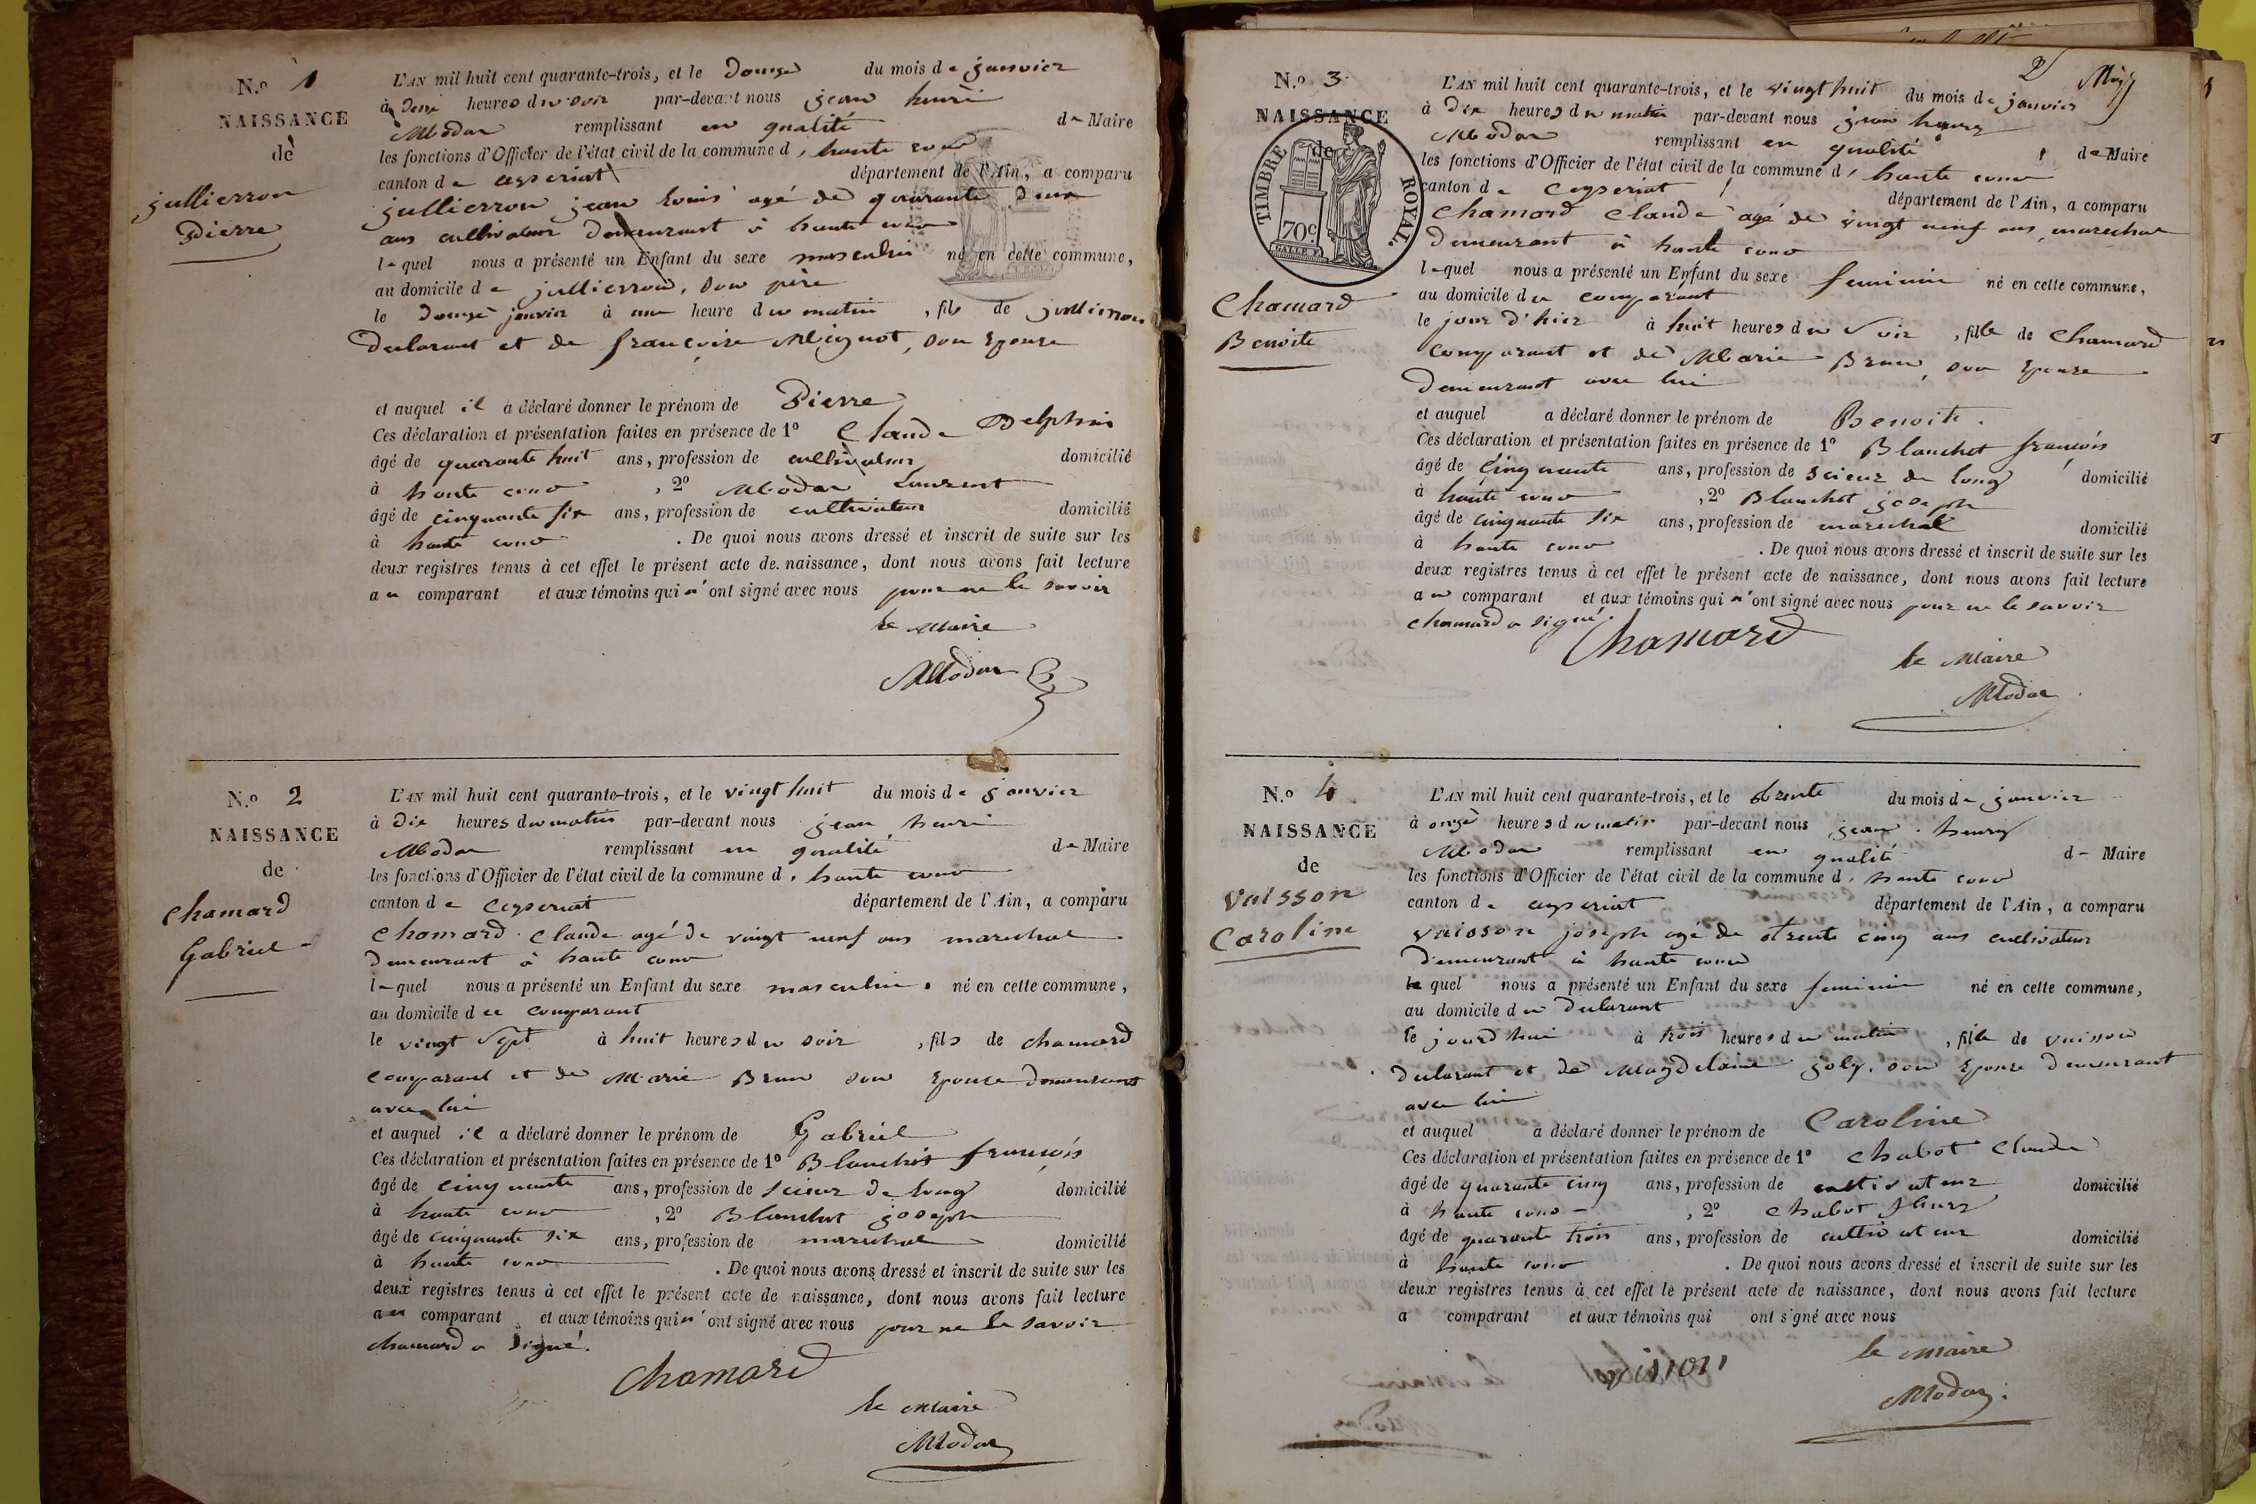 N.º 1
NAISSANCE
de
jullierron
Pierre
L'AN mil huit cent quarante-trois, et le douze du mois de janvier
à deux heures du soir par-devant nous jean henri
Modar remplissant en qualité de Maire
les fonctions d'Officier de l'état civil de la commune d'haute cour
canton de ceyseriat département de l'Ain, a comparu
jullierron jean louis agé de quarante deux
ans cultivateur demeurant à haute cour
lequel nous a présenté un Enfant du sexe masculin né en cette commune,
au domicile de jullierron, son père
le douze janvier à une heure du matin, fils de jullierron
declarant et de françoise Mignot, son Epouse
et auquel il a déclaré donner le prénom de Pierre
Ces déclaration et présentation faites en présence de 1º Claude Delphin
âgé de quarante huit ans, profession de cultivateur domicilié
à haute cour, 2º Modar Laurent
âgé de cinquante six ans, profession de cultivateur domicilié
à haute cour. De quoi nous avons dressé et inscrit de suite sur les
deux registres tenus à cet effet le présent acte de naissance, dont nous avons fait lecture
au comparant et aux témoins qui n'ont signé avec nous pour ne le savoir
le Maire
Modar
N.º 2
NAISSANCE
de
Chamard
Gabriel
L'AN mil huit cent quarante-trois, et le vingt huit du mois de janvier
à dix heures du matin par-devant nous jean henri
Modar remplissant en qualité de Maire
les fonctions d'Officier de l'état civil de la commune d'haute cour
canton de Ceyseriat département de l'Ain, a comparu
Chamard Claude agé de vingt neuf ans marechal
demeurant à haute cour
lequel nous a présenté un Enfant du sexe masculin. né en cette commune,
au domicile du comparant
le vingt sept à huit heures du soir, fils de chamard
comparant et de Marie Brun son Epouse demeurant
avec lui
et auquel il a déclaré donner le prénom de Gabriel
Ces déclaration et présentation faites en présence de 1º Blanchet françois
âgé de cinquante ans, profession de scieur de long domicilié
à haute cour, 2º Blanchet joseph
âgé de cinquante six ans, profession de marechal domicilié
à haute cour. De quoi nous avons dressé et inscrit de suite sur les
deux registres tenus à cet effet le présent acte de naissance, dont nous avons fait lecture
au comparant et aux témoins qui n'ont signé avec nous pour ne le savoir
chamard a signé.
Chamard
le Maire
Modar
2
N.º 3
NAISSANCE
de
TIMBRE ROYAL.
70c
Chamard
Benoite
L'AN mil huit cent quarante-trois, et le vingt huit du mois de janvier
à dix heures du matin par-devant nous jean henry
Modar remplissant en qualité de Maire
les fonctions d'Officier de l'état civil de la commune d'haute cour
canton de Ceyseriat département de l'Ain, a comparu
Chamard Claude agé de vingt neuf ans marechal
demeurant à haute cour
lequel nous a présenté un Enfant du sexe feminin né en cette commune,
au domicile du comparant
le jour d'hier à huit heures du soir, fille de Chamard
comparant et de Marie Brun, son Epouse
demeurant avec lui
et auquel a déclaré donner le prénom de Benoite.
Ces déclaration et présentation faites en présence de 1º Blanchet françois
âgé de cinquante ans, profession de scieur de long domicilié
à haute cour, 2º Blanchet joseph
âgé de cinquante six ans, profession de marechal domicilié
à haute cour. De quoi nous avons dressé et inscrit de suite sur les
deux registres tenus à cet effet le présent acte de naissance, dont nous avons fait lecture
au comparant et aux témoins qui n'ont signé avec nous pour ne le savoir
chamard a signé.
Chamard
le Maire
Modar
N.º 4
NAISSANCE
de
Vaisson
Caroline
L'AN mil huit cent quarante-trois, et le trente du mois de janvier
à onze heures du matin par-devant nous jean henry
Modar remplissant en qualité de Maire
les fonctions d'Officier de l'état civil de la commune d'haute cour
canton de ceyseriat département de l'Ain, a comparu
vaisson joseph agé de trente cinq ans cultivateur
demeurant à haute cour
lequel nous a présenté un Enfant du sexe feminin né en cette commune,
au domicile du declarant
le jourd'hui à trois heures du matin, fille de vaisson
declarant et de Magdelaine joly. son Epouse demeurant
avec lui
et auquel a déclaré donner le prénom de Caroline
Ces déclaration et présentation faites en présence de 1º Chabot Claude
âgé de quarante cinq ans, profession de cultivateur domicilié
à haute cour, 2º Chabot
âgé de quarante trois ans, profession de cultivateur domicilié
à haute cour. De quoi nous avons dressé et inscrit de suite sur les
deux registres tenus à cet effet le présent acte de naissance, dont nous avons fait lecture
a comparant et aux témoins qui ont signé avec nous
le Maire
Modar